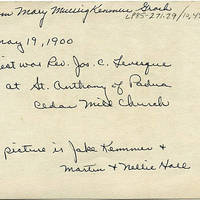 m Mary Muesing Kemmer Groch
LP85-271.29/10,4
May 19, 1900
est was Rev. Jos. C. Levesque
at St. Anthony of Padua
Cedar Mill Church
picture is Jake Kemmer &
Martin & Nellie Hall